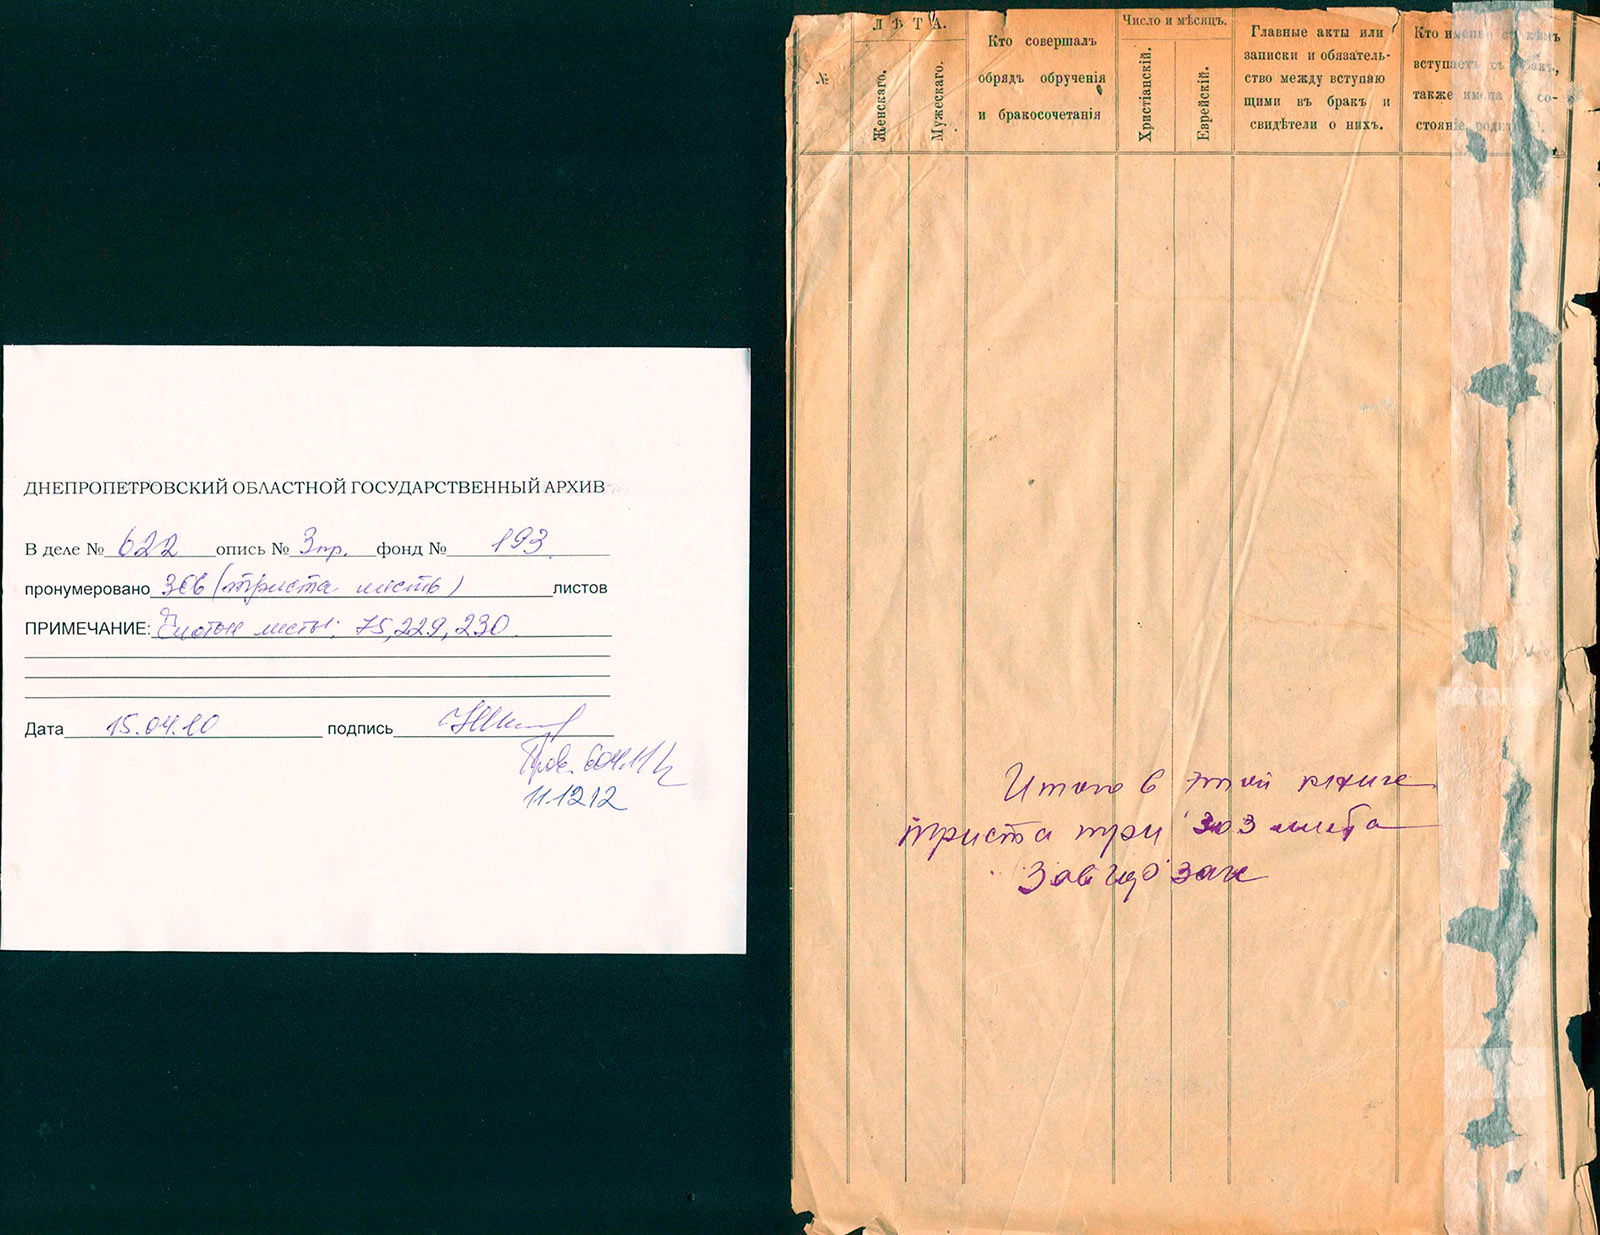 ДНЕПРОПЕТРОВСКИЙ ОБЛАСТНОЙ ГОСУДАРСТВЕННЫЙ АРХИВ
В деле № 622 опись № 3пр. фонд № 193
пронумеровано 306 (триста шесть) листов
ПРИМЕЧАНИЕ: Чистые листы: 75, 229, 230.
Дата 15.04.10 подпись
Пров.
11.12.12
№
ЛѢТА.
Женскаго.
Мужескаго.
Кто совершалъ
обрядъ обрученія
и бракосочетанія
Число и мѣсяцъ.
Христіанскій.
Еврейскій.
Главные акты или
записки и обязатель-
ство между вступаю
щими въ бракъ и
свидѣтели о нихъ.
Кто именно съ кѣмъ
вступаетъ въ бракъ,
также имена и со-
стояніе родит
Итого в этой книге
триста три 303 листа
Зав